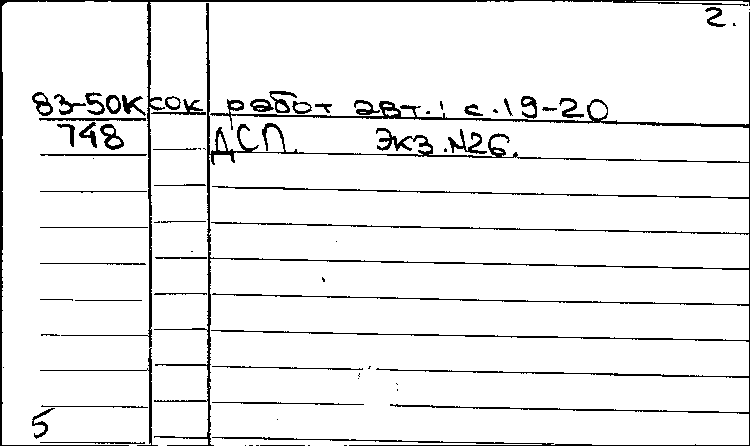 2.
83-50К сок работ авт.: с.19-20
748 ДСП. Экз.№26.
5